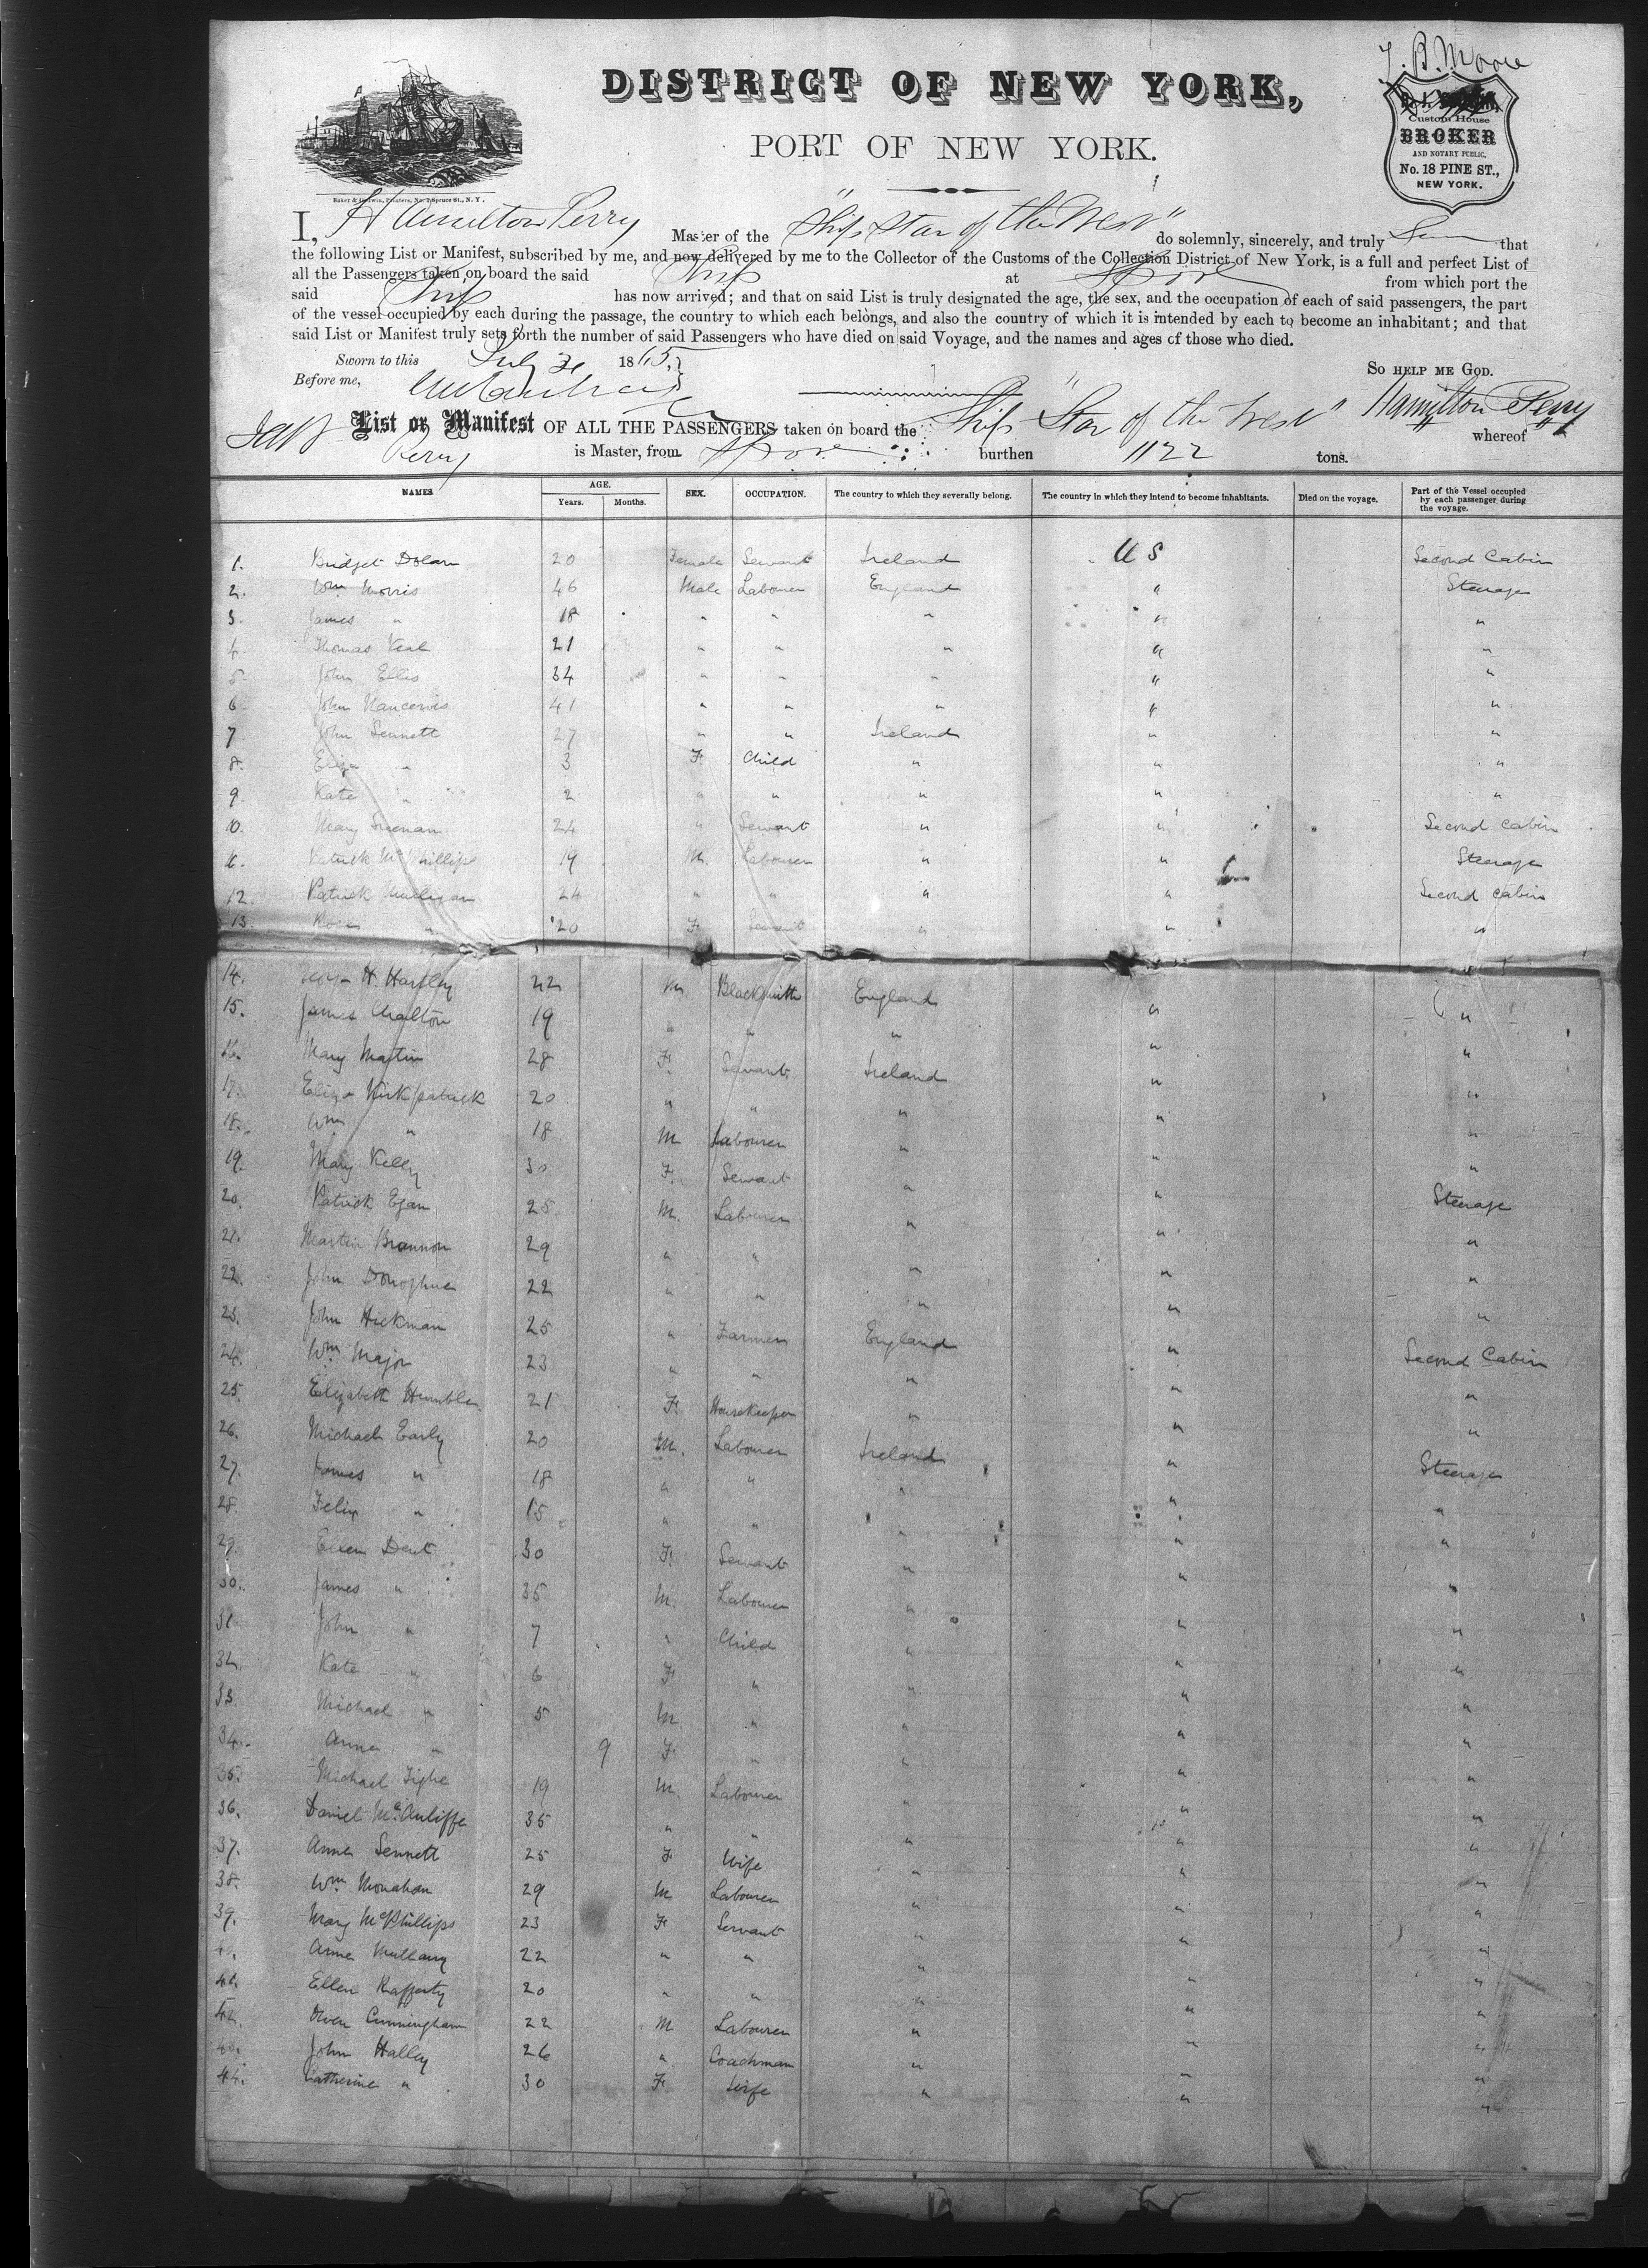 T. B. Moore
DISTRICT OF NEW YORK,
Custom House
BROKER
AND NOTARY PUBLIC,
No. 18 PINE ST.,
NEW YORK.
PORT OF NEW YORK.
Baker & Godwin, Printers, No. 1 Spruce St., N. Y.
I, Hamilton Perry Master of the "Ship Star of the West" do solemnly, sincerely, and truly that
the following List or Manifest, subscribed by me, and now delivered by me to the Collector of the Customs of the Collection District of New York, is a full and perfect List of
all the Passengers taken on board the said Ship at from which port the
said Ship has now arrived; and that on said List is truly designated the age, the sex, and the occupation of each of said passengers, the part
of the vessel occupied by each during the passage, the country to which each belongs, and also the country of which it is intended by each to become an inhabitant; and that
said List or Manifest truly sets forth the number of said Passengers who have died on said Voyage, and the names and ages of those who died.
Sworn to this July 1865
So help me God.
Before me,
Hamilton Perry
List or Manifest OF ALL THE PASSENGERS taken on board the Ship "Star of the West" whereof
Perry is Master, from burthen 1122 tons.
NAMES. AGE. Years. Months. SEX. OCCUPATION. The country to which they severally belong. The country in which they intend to become inhabitants. Died on the voyage. Part of the Vessel occupied by each passenger during the voyage.
1. Bridget Dolan 20 Female Servant Ireland U S Second Cabin
2. Wm Morris 46 Male Labourer England " Steerage
3. James " 18 " " " " "
4. Thomas Keal 21 " " " " "
5. John Ellis 34 " " " " "
6. John 41 " " " " "
7. John Sennett 27 " " Ireland " "
8. Eliza " 3 F Child " " "
9. Kate " 2 " " " " "
10. Mary 24 " Servant " " Second Cabin
11. Patrick McPhillips 19 M. Labourer " " Steerage
12. Patrick Mulligan 24 " " " " Second Cabin
13. Rose " 20 F Servant " " "
14. H Hartley 22 M Blacksmith England " "
15. James Chalton 19 " " " " "
16. Mary Martin 28 F. Servant Ireland " "
17. Eliza Kirkpatrick 20 " " " " "
18. Wm " 18 M Labourer " " "
19. Mary Kelly 30 F. Servant " " "
20. Patrick Egan 25 M. Labourer " " Steerage
21. Martin Brannon 29 " " " " "
22. John Donoghue 22 " " " " "
23. John Hickman 25 " Farmer England " "
24. Wm Major 23 " " " " Second Cabin
25. Elizabeth Humble 21 F. Housekeeper " " "
26. Michael Early 20 M. Labourer Ireland " "
27. James " 18 " " " " Steerage
28. Felix " 15 " " " " "
29. Ellen Dent 30 F. Servant " " "
30. James " 35 M. Labourer " " "
31. John " 7 " Child " " "
32. Kate " 6 F " " " "
33. Michael " 5 M " " " "
34. Anne " 9 F " " " "
35. Michael Tighe 19 M. Labourer " " "
36. Daniel McAuliffe 35 " " " " "
37. Anne Sennett 25 F Wife " " "
38. Wm Monahan 29 M Labourer " " "
39. Mary McPhillips 23 F Servant " " "
40. Anne Mullany 22 " " " " "
41. Ellen Rafferty 20 " " " " "
42. Owen Cunningham 22 M Labourer " " "
43. John Halley 26 " Coachman " " "
44. Catherine " 30 F. Wife " " "